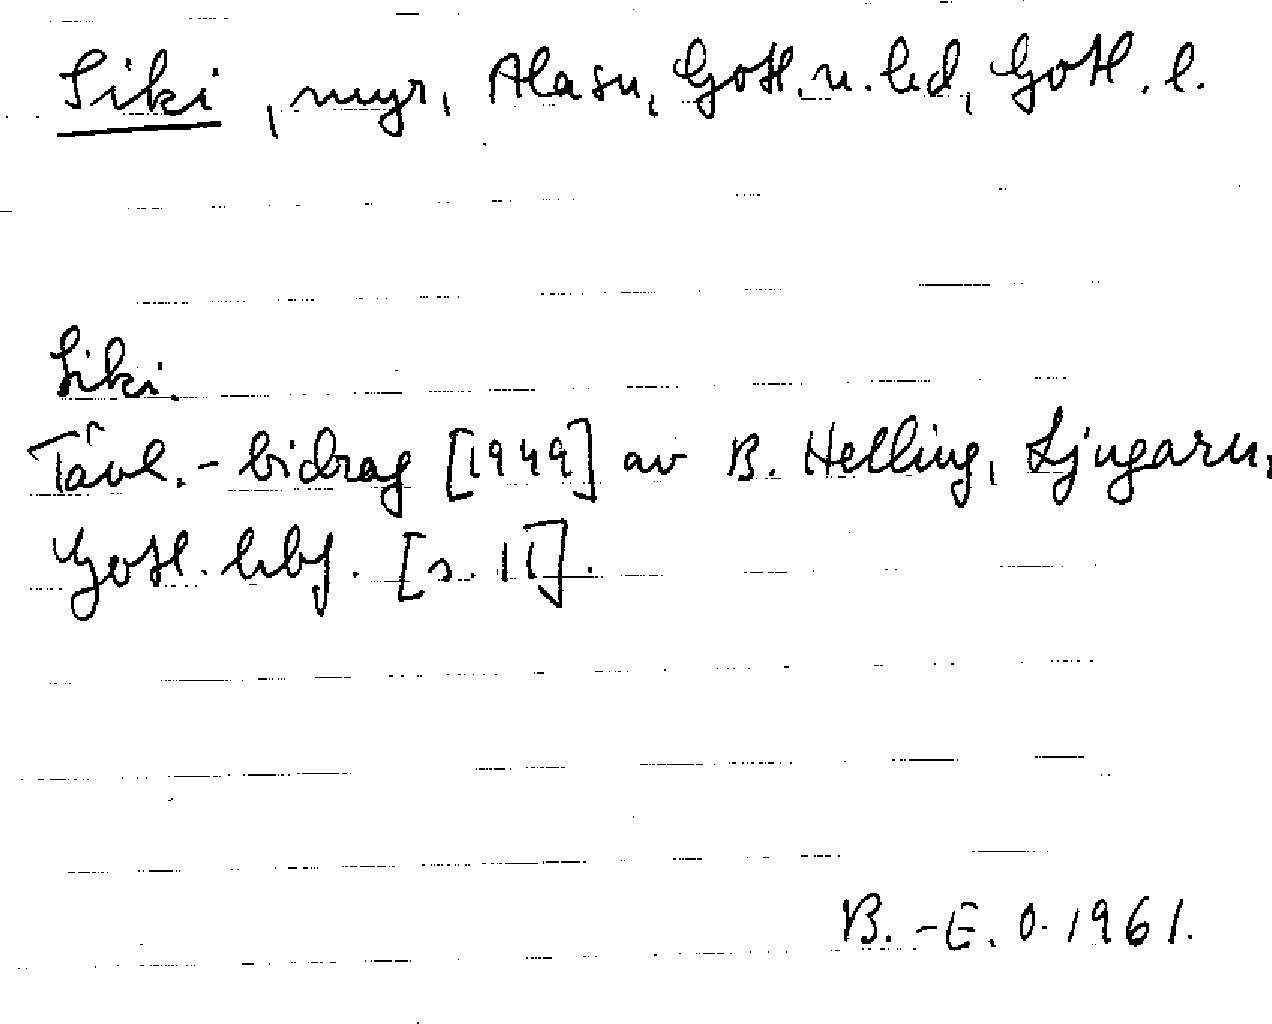 Siki, myr, Ala sn, Gotl. n. hd, Gotl. l.
Siki.
Tävl.-bidrag [1949] av B. Helling, Ljugarn,
Gotl. hbf. [s. 11].
B.-E. O. 1961.